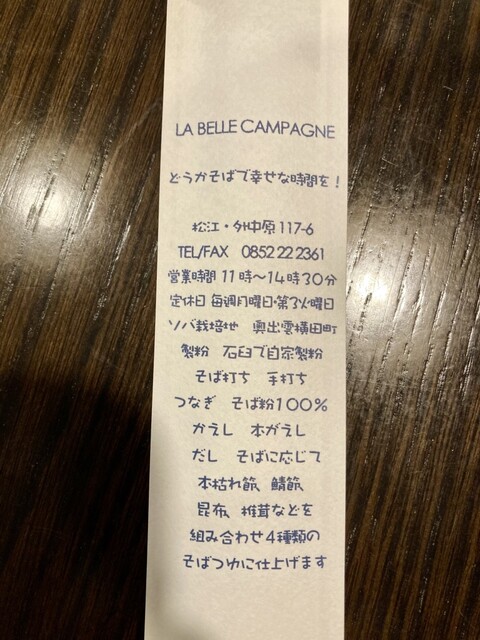 LA BELLE CAMPAGNE
どうかそばで幸せな時間を！
松江・外中原117-6
TEL/FAX 0852 22 2361
営業時間 11時～14時30分
定休日 毎週月曜日・第3火曜日
ソバ栽培地 奥出雲横田町
製粉 石臼で自家製粉
そば打ち 手打ち
つなぎ そば粉100％
かえし 本がえし
だし そばに応じて
本枯れ節、鯖節、
昆布、椎茸などを
組み合わせ4種類の
そばつゆに仕上げます